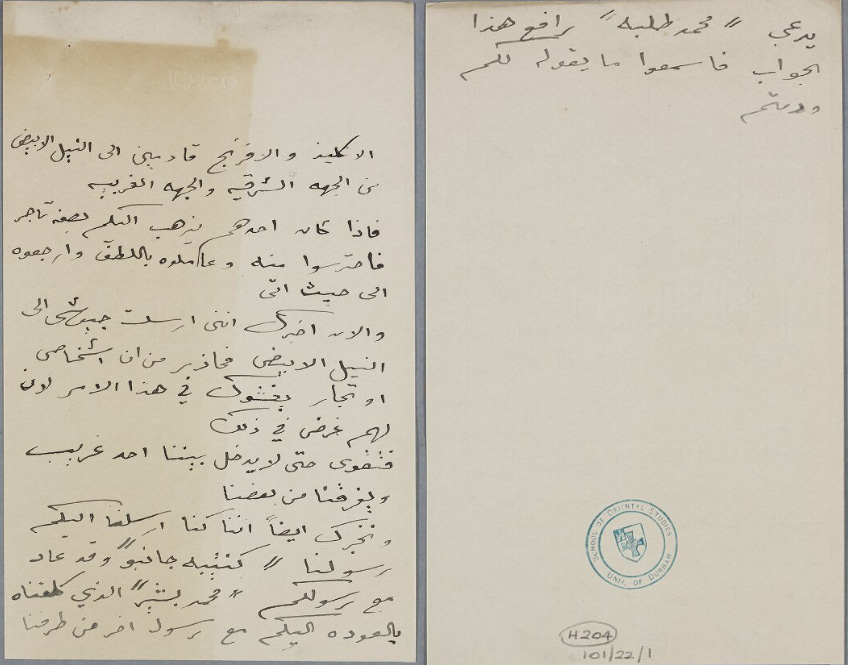 الانكليز والافرنج قادمين الى النيل الابيض
من الجهه الشرقيه والجهه الغربيه
فاذا كان احدهم يذهب اليكم بصفة تاجر
فاحترسوا منه وعاملوه باللطف وارجعوه
الى حيث اتى
والان اخبرك انني ارسلت جيوشي الى
النيل الابيض فحاذير من ان اشخاص
او تجار يغشوك في هذا الامر لان
لهم غرض في ذلك
فتقوى حتى لا يدخل بيننا احد غريب
ويفرقنا من بعضنا
ونخبرك ايضاً اننا كنا ارسلنا اليكم
رسولنا " جانبو" وقد عاد
مع رسولكم "محمد بشير" الذي كلفناه
بالعوده اليكم مع رسول اخر من طرفنا
يدعى "محمد طلبه" رافع هذا
الجواب فاسمعوا ما يقوله لكم
ودمتم
SCHOOL OF ORIENTAL STUDIES
UNIV. OF DURHAM
H204
101/22/1